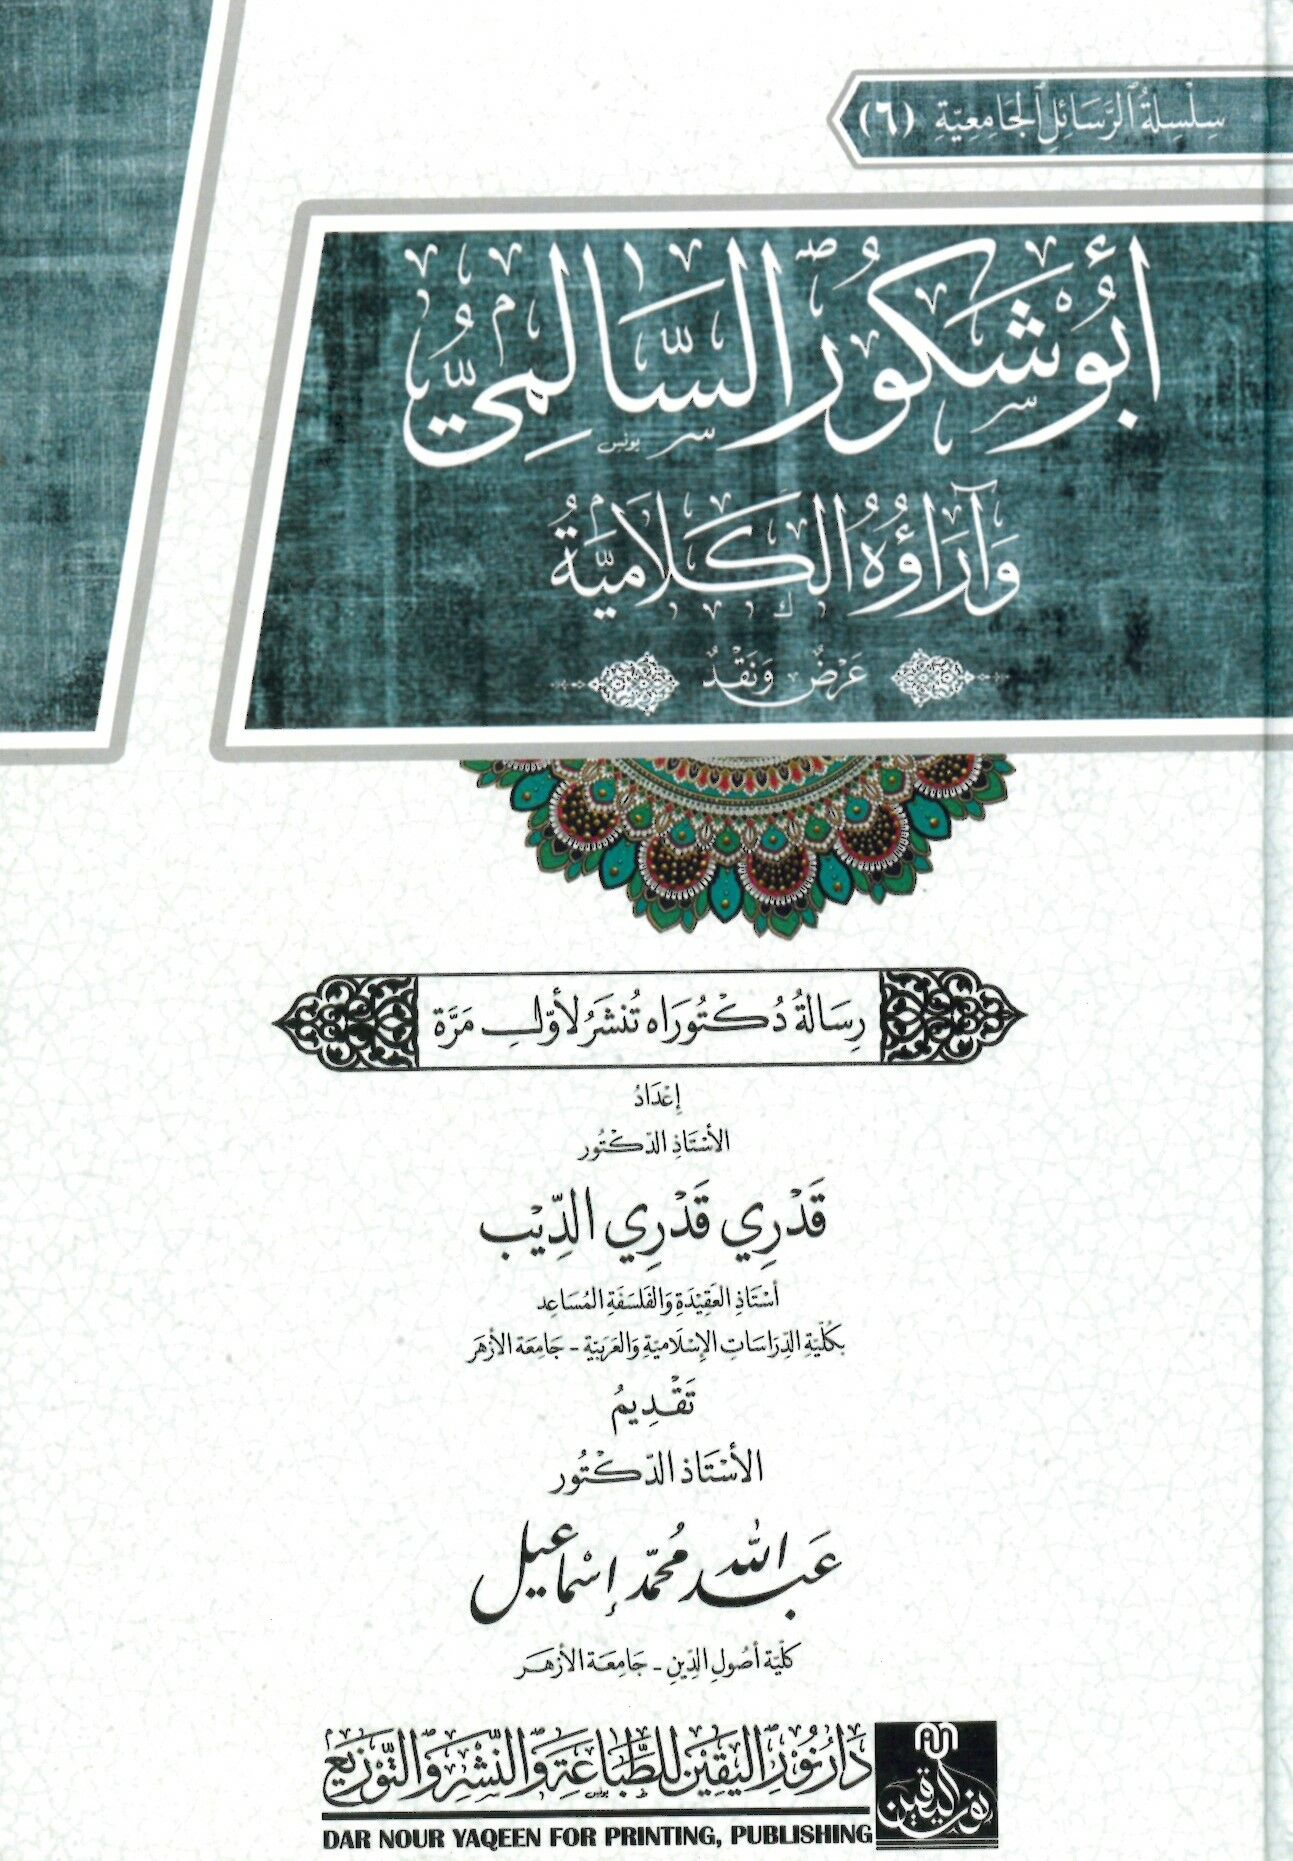 سِلْسِلَةُ الرَّسَائِلِ الجَامِعِيَّةِ (٦)
أَبُو شَكُورٍ السَّالِمِيُّ
وَآرَاؤُهُ الكَلَامِيَّةُ
عَرْضٌ وَنَقْدٌ
رِسَالَةُ دُكْتُورَاه تُنشَرُ لأَوَّلِ مَرَّة
إِعْدَادُ
الأُسْتَاذِ الدّكْتُور
قَدْرِي قَدْرِي الدِّيْب
أُسْتَاذِ العَقِيْدَةِ وَالفَلْسَفَةِ المُسَاعِد
بكُلِّيَّةِ الدِّرَاسَاتِ الإِسْلَامِيَّةِ وَالعَرَبِيَّةِ - جَامِعَة الأَزْهَر
تَقْدِيمُ
الأُسْتَاذ الدّكْتُور
عَبدِ اللهِ مُحَمَّد إِسْمَاعِيل
كُلِّيَّة أُصُولِ الدِّينِ - جَامِعَة الأَزْهَر
دَار نُورِ اليَقِيْنِ لِلطِّبَاعَةِ وَالنَّشْرِ وَالتَّوْزِيعِ
نور اليقين
DAR NOUR YAQEEN FOR PRINTING, PUBLISHING